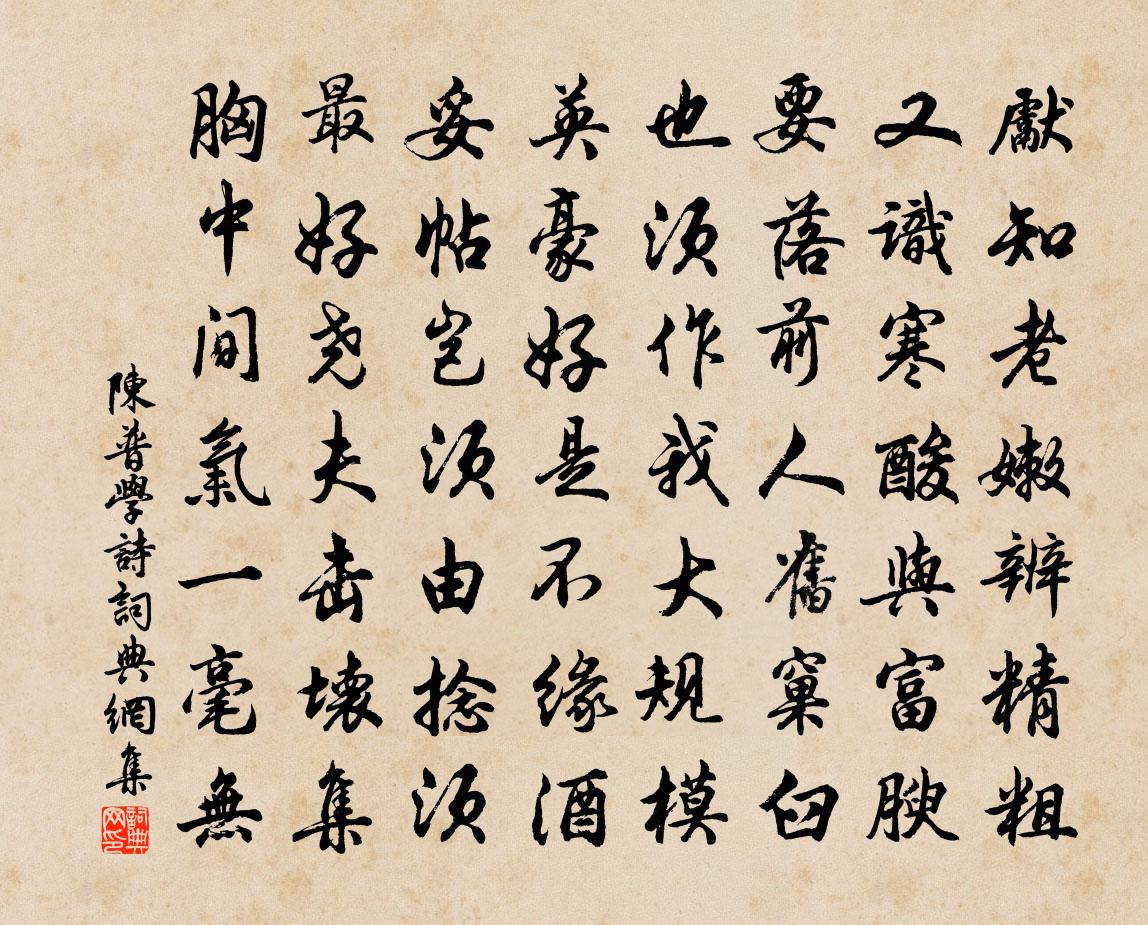 獻知老嫩辨精粗
又識寒酸與富腴
要落前人舊窠臼
也須作我大規模
英豪好是不緣酒
妥帖豈須由捻須
最好堯夫击壞集
胸中間氣一毫無
陳普學詩詞典網集
詞典网印